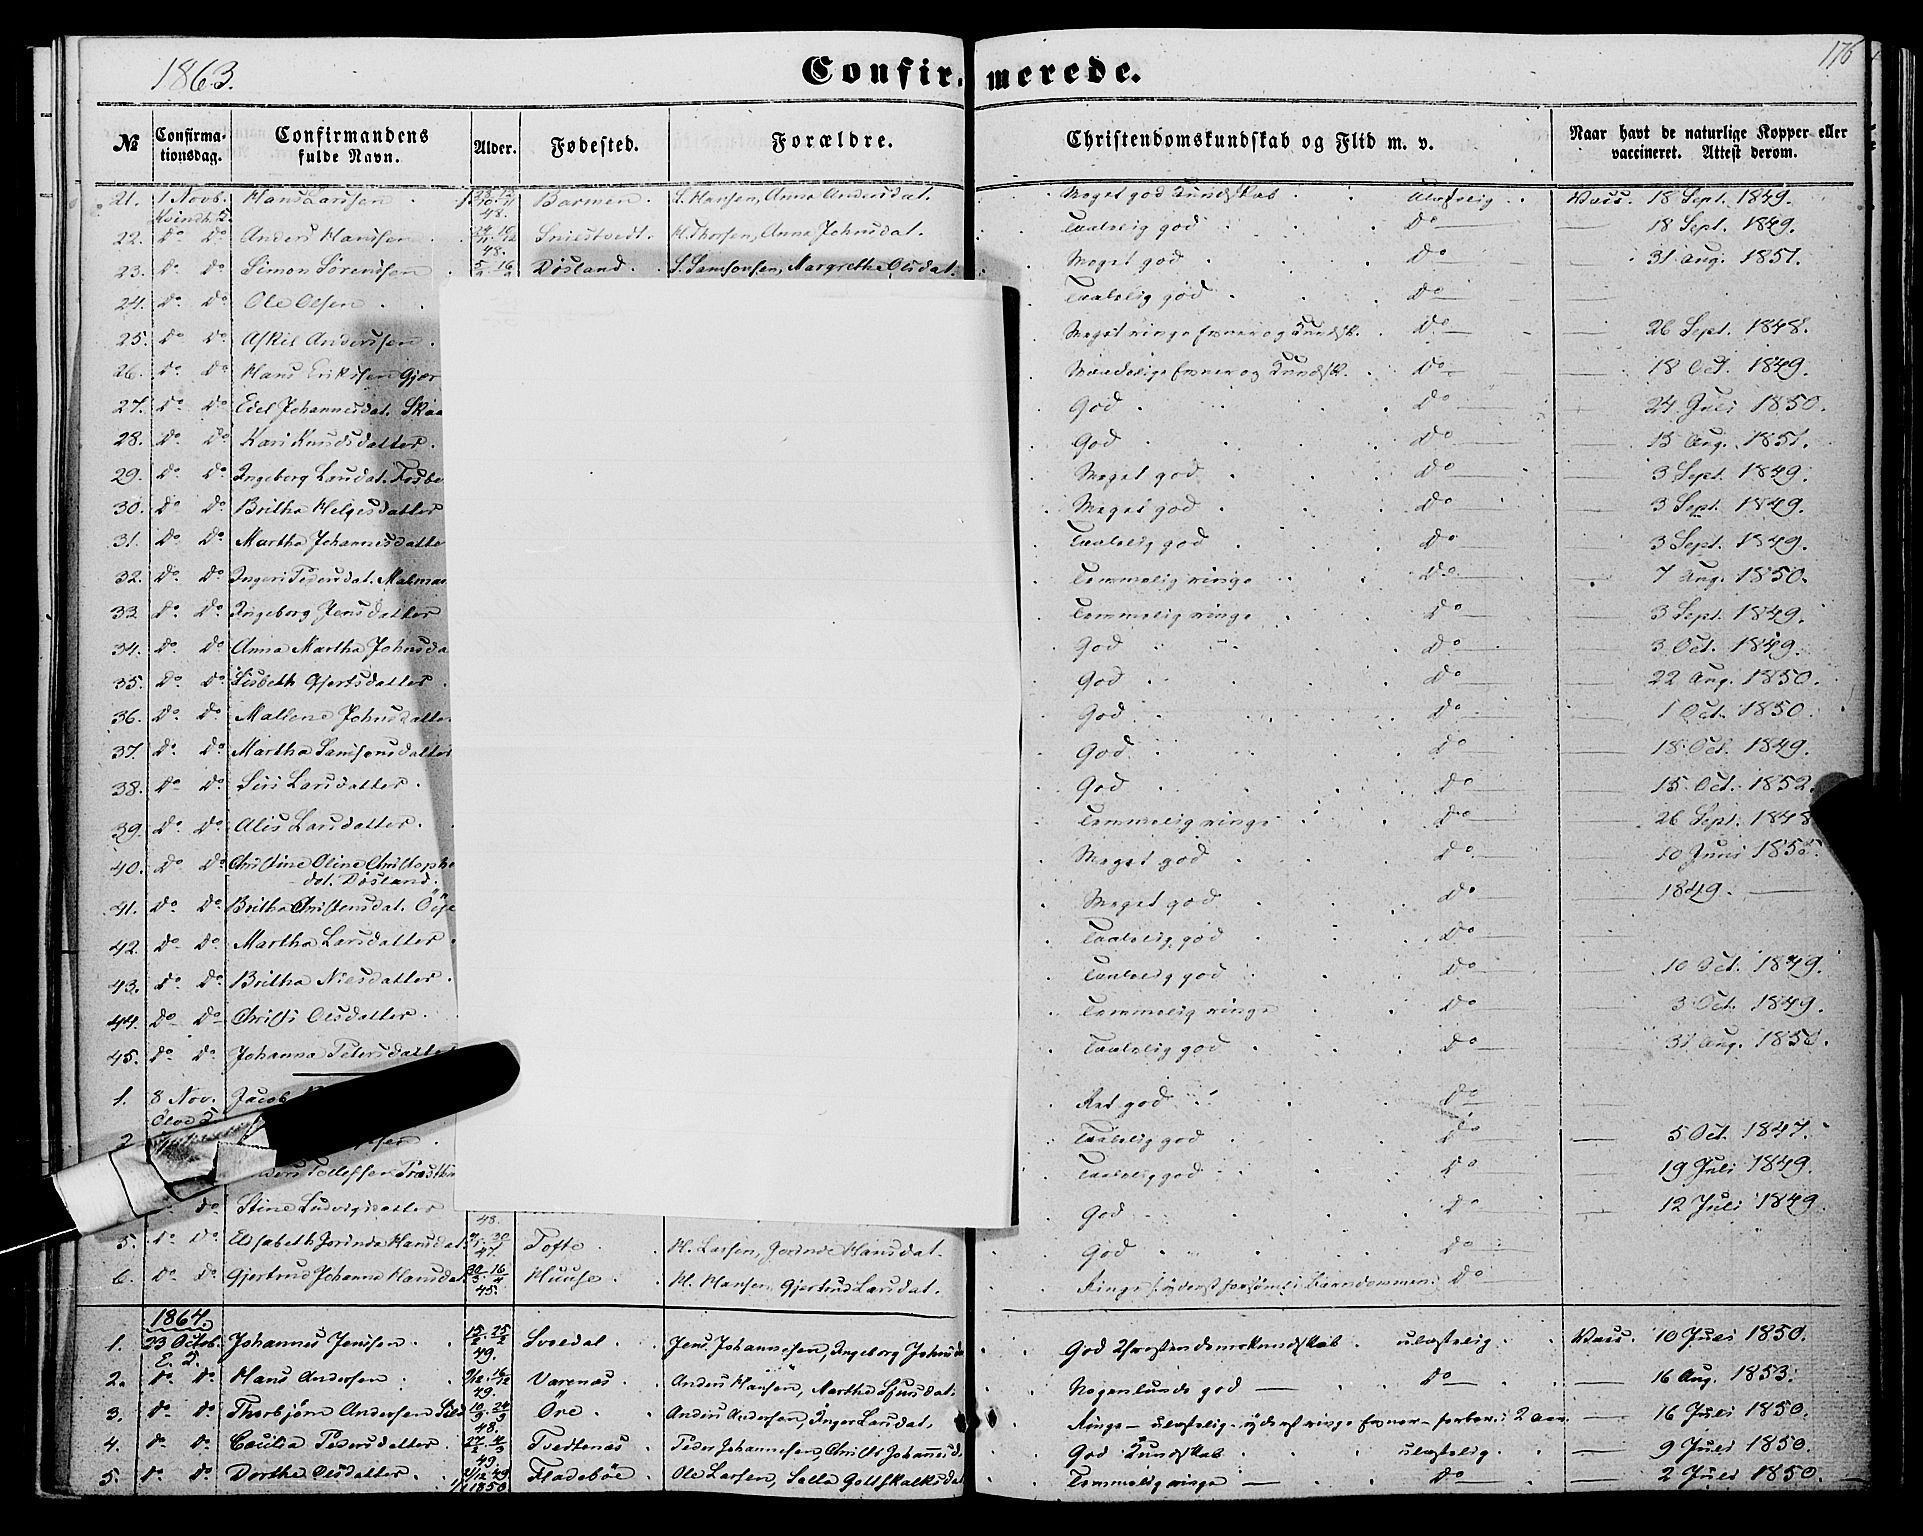 1863.
Confirmerede.
176
№ Confirmationsdag. Confirmandens fulde Navn. Alder. Fødested. Forældre. Christendomskundskab og Flid m. v. Naar havt de naturlige Kopper eller vaccineret. Attest derom.
21. 1 Novb. Hans Larsen Barmen L. Hansen, Anna Andersdat. Meget god Kundskab Ulastelig Vacc. 18 Sept. 1849.
22. Do Do Anders Hansen 48. H. Thorsen, Anna Johnsdat. Taalelig god Do 18 Sept. 1849.
23. Do Do Simon Sörensen Dösland. S. Samsonsen, Margrethe Olsdat. Meget god Do 31 Aug. 1851.
24. Do Do Ole Olsen Taalelig god Do
25. Do Do Askil Andersen Meget ringe Evner og Kundsk. Do 26 Sept. 1848.
26. Do Do Hans Eriksen Gjer Maadelige Evner og Kundsk. Do 18 Oct. 1849.
27. Do Do Edel Johannesdat. God Do 24 Juli 1850.
28. Do Do Kari Knudsdatter God Do 15 Aug. 1851.
29. Do Do Ingeborg Larsdat. Meget god Do 3 Sept. 1849.
30. Do Do Britha Helgesdatter Meget god Do 3 Sept. 1849.
31. Do Do Martha Johannesdatte Taalelig god Do 3 Sept. 1849.
32. Do Do Ingeri Pedersdat. Temmelig ringe Do 7 Aug. 1850.
33 Do Do Ingeborg Jensdatter Temmelig ringe Do 3 Sept. 1849.
34. Do Do Anna Martha Johnsda God Do 3 Oct. 1849.
35. Do Do Lisbeth Gjertsdatter God Do 22 Aug. 1850.
36. Do Do Mallene Johnsdatter God Do 1 Oct. 1850.
37. Do Do Martha Samsonsdatter God Do 18 Oct. 1849.
38. Do Do Siri Larsdatter God Do 15 Oct. 1852.
39. Do Do Alis Larsdatter. Temmelig ringe Do 26 Sept. 1848
40. Do Do Christine Oline Christophe Meget god Do 10 Juni
dat. Dösland.
41. Do Do Britha Christensdat. Meget god Do 1849.
42. Do Do Martha Larsdatter Taalelig god Do
43. Do Do Britha Nielsdatter Taalelig god Do 10 Oct. 1849.
44. Do Do Christi Olsdatter Temmelig ringe Do 3 Oct. 1849.
45. Do Do Johanna Petersdatter Taalelig god Do 31 Aug. 1850.
1. 8 Nov. Jacob Ret god Do
2 Taalelig god Do 5 Oct. 1847.
Tollefsen Taalelig god Do 19 Juli 1849.
Do Stine Ludvigsdatter 48. God Do 12 Juli 1849.
5. Do Do Elisabeth Jorinda Hansdat. 47. Tofte H. Larsen, Jorinde Hansdat. God Do
6. Do Do Gjertrud Johanna Hansdat 45. Huuse H. Hansen, Gjertrud Larsdat. Do
1864.
1. 23 Octob. Johannes Jensen 49. Svoedal Jens Johannesen, Ingeborg Johnsda God Christendomskundskab ulastelig Vacc. 10 Juli 1850.
2. Do Do Hans Andersen 49. Varenæs Anders Hansen, Martha Sjursdat. Nogenlunde god Do 16 Aug. 1853.
3. Do Do Thorbjörn Andersen 48. Öre Anders Andersen, Inger Larsdat. Ringe - ulastelig - yderst ringe Evner - forber. i 2 Aar 16 Juli 1850.
4. Do Do Cecilia Pedersdatter 49. Tvedtenæs Peder Johannesen, Christi Johannesd God Kundskab ulastelig 9 Juli 1850.
5. Do Do Dorthe Olsdatter 1850 Fladeböe Ole Larsen, Salla Gottskalksdat Temmelig ringe Do 2 Juli 1850.